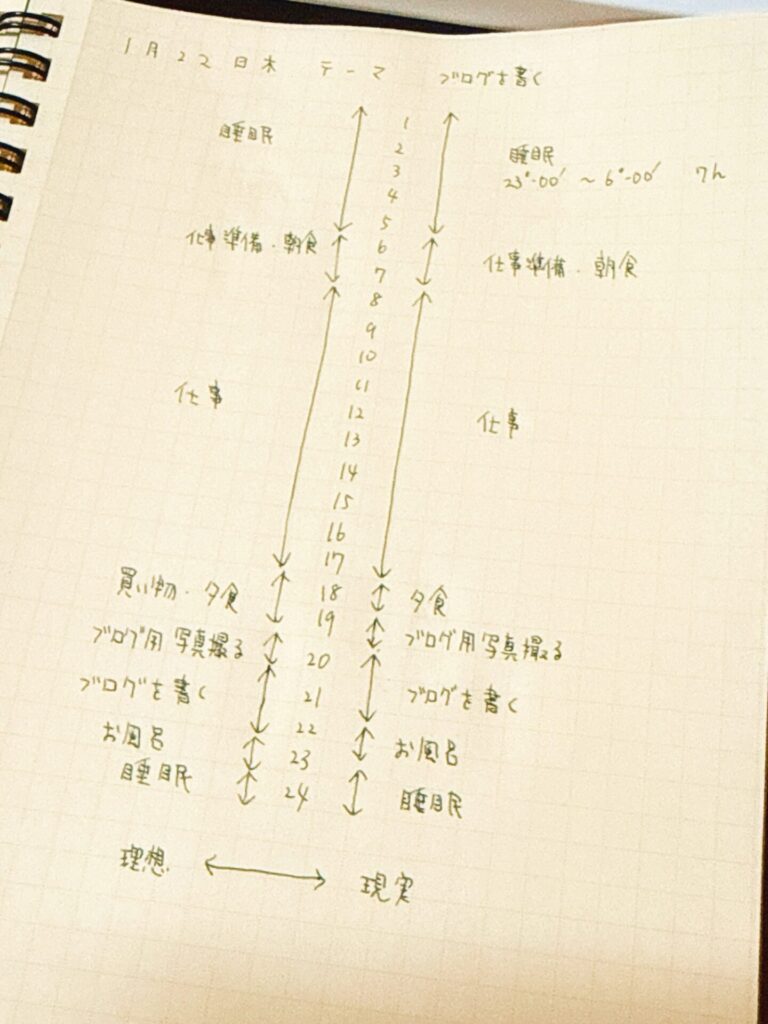 1月22日木 テーマ ブログを書く
1
睡眠 2 睡眠
3 23°-00' ~ 6°-00' 7h
4
5
仕事準備・朝食 6 仕事準備・朝食
7
8
9
10
11
仕事 12 仕事
13
14
15
16
17
買い物・夕食 18 夕食
19 ブログ用写真撮る
ブログ用写真撮る 20
ブログを書く 21 ブログを書く
22
お風呂 23 お風呂
睡眠 24 睡眠
理想 現実